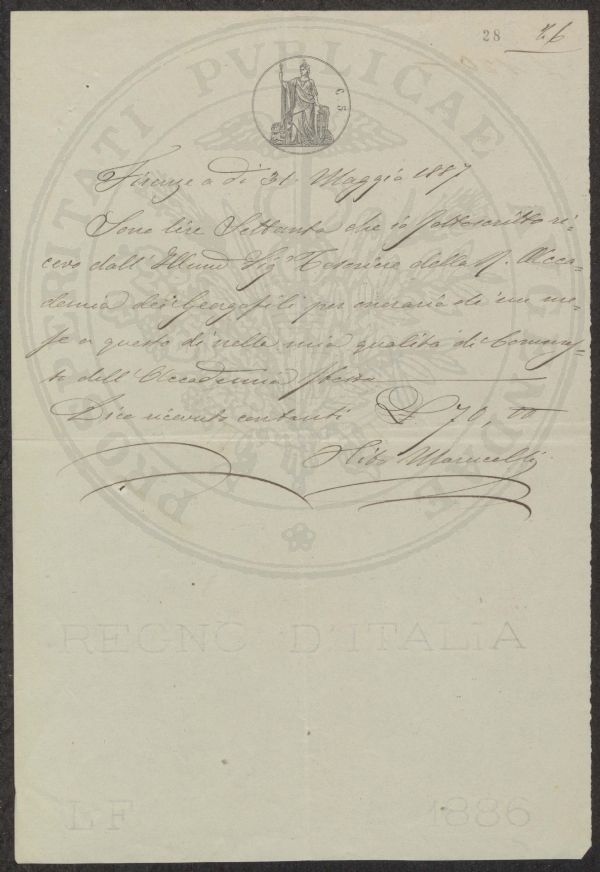 28 26
PROSPERITATI PVBLICAE AVGENDAE
C. 5.
Firenze a dì 31. Maggio 1887
Sono lire Settanta che io sottoscritto ri-
cevo dall' Illmo Sig. Tesoriere della R. Acca-
demia dei Georgofili per onorario di un me-
se a questo dì nella mia qualità di Commes-
so dell' Accademia stessa
Dico ricevute contanti L 70,00
Marucelli
REGNO D'ITALIA
LF 1886